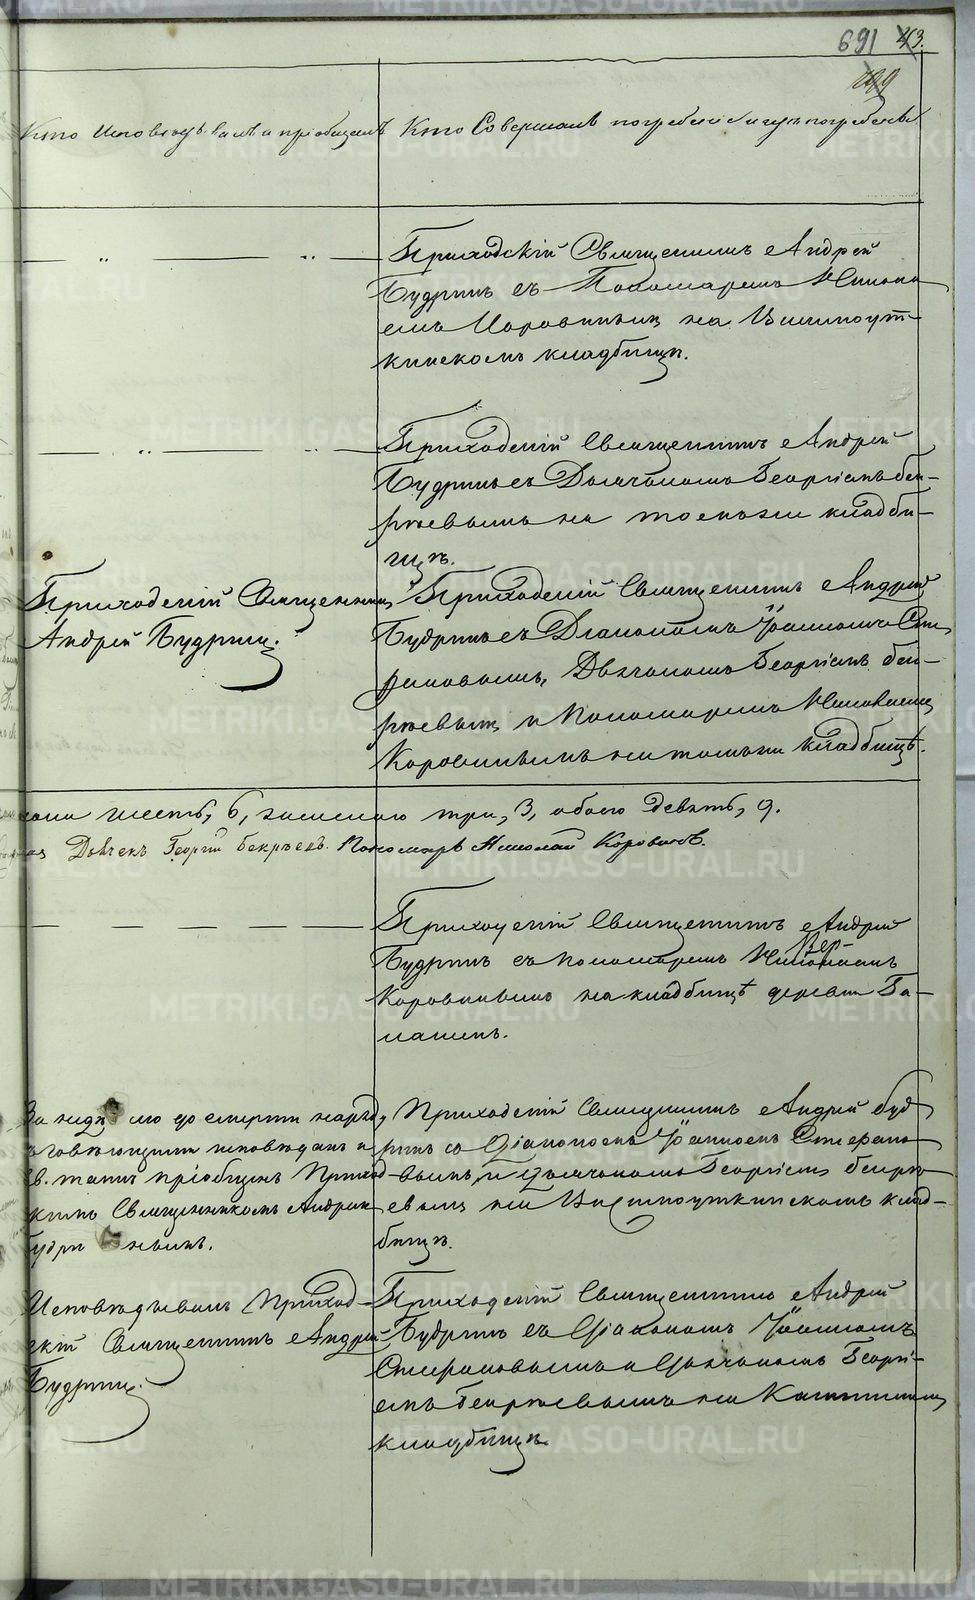 691 43.
199
Кто исповѣдывалъ и пріобщалъ
Кто Совершалъ погребеніе и гдѣ погребены
Приходскій Священникъ Андрей
Будринъ съ Пономаремъ Никола
емъ Коровинымъ на Висимоут-
кинскомъ кладбищѣ.
Приходскій Священникъ Андрей
Будринъ съ Дьячкомъ Георгіемъ бек-
рѣевымъ на томъ же кладби-
щѣ.
Приходскій Священникъ
Андрей Будринъ.
Приходскій Священникъ Андрей
Будринъ съ Діакономъ Іоанномъ Сте
фановымъ, Дьячкомъ Георгіемъ бек-
рѣевымъ и Пономаремъ Николаемъ
Коровинымъ на томъ же кладбищѣ.
шесть, 6, женскаго три, 3, обоего девять, 9.
Дьячекъ Георгій бекрѣевъ. Пономарь Николай Коровинъ.
Приходскій Священникъ Андрей
Будринъ съ Пономаремъ Николаемъ
Коровинымъ на кладбищѣ деревни Га-
лашки.
За недѣлю до смерти наряду
съ говѣющими исповѣданъ и
св. таинъ пріобщенъ Приход
скимъ Священникомъ Андреемъ
Будринымъ.
Приходскій Священникъ Андрей буд
ринъ съ Діакономъ Іоанномъ Стефано
вымъ и Дьячкомъ Георгіемъ бекрѣ
евымъ на Висимоуткинскомъ клад-
бищѣ.
Исповѣдывалъ Приход-
скій Священникъ Андрей
Будринъ.
Приходскій Священникъ Андрей
Будринъ съ Діакономъ Іоанномъ
Стефановымъ и Дьячкомъ Георгі-
емъ бекрѣевымъ на
кладбищѣ.
METRIKI.GASO-URAL.RU